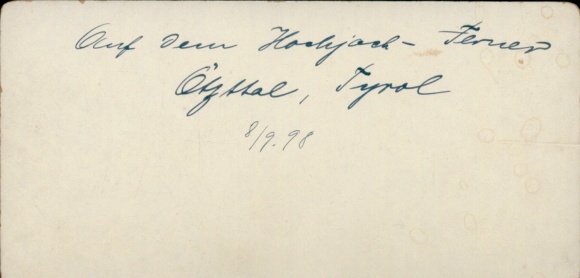 Auf dem Hochjoch - Ferner
Ötzthal, Tyrol
8/9.98